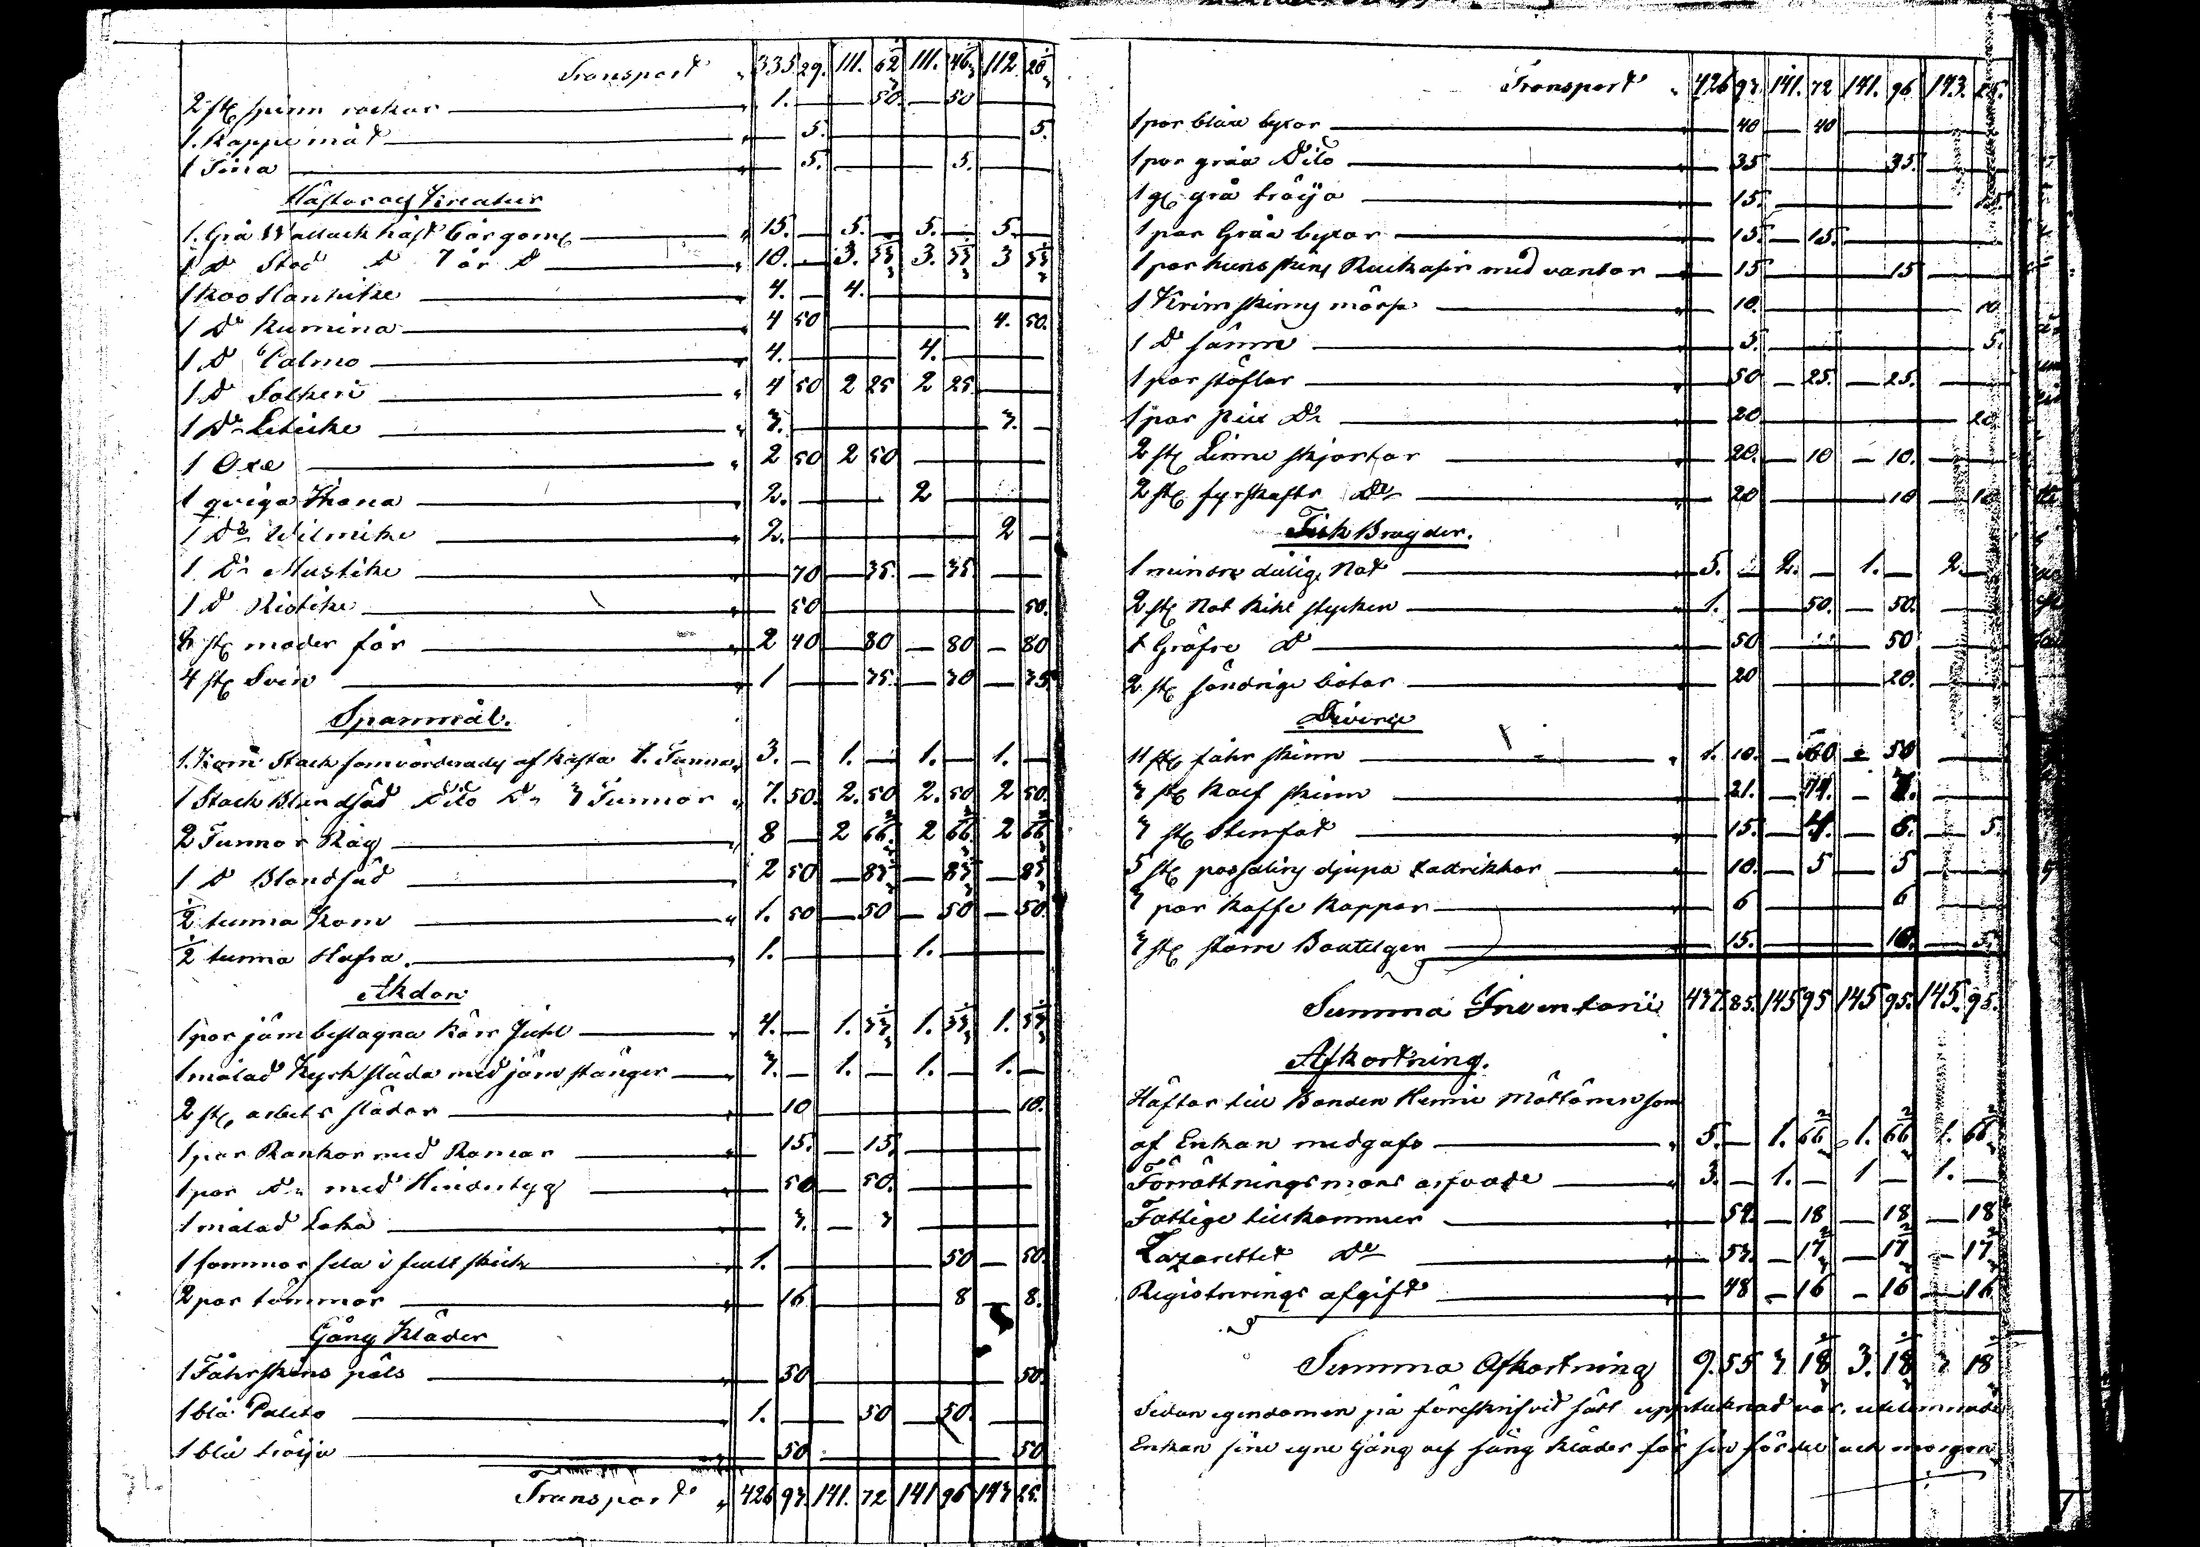 Transport 335 29. 111. 62 111. 46 112 20
2 st spinn rockar 1. 50. 50
1. Kappe måt 5. 5.
1 Tina 5. 5.
Hästar och Kreatur
1. Grå Wallack häst 15. 5. 5. 5.
1 D Sto D 7 år D 10. 3. 33 3. 33 3 33
1 Koo 4. 4.
1 Do Kumina 4 50 4. 50.
1 D Calmo 4. 4.
1 D 4 50 2 25 2 25
1 Do 3. 3.
1 Oxe 2 50 2 50
1 qviga 2. 2
1 Do Wilmike 2. 2
1 Do Mustike 70 35. 35
1 D 50 50.
st moder får 2 40 80 80 80
4 st Svin 1 35. 30 35
Spanmål.
1. Korn Stack som värderades af kasta 1. Tunna 3. 1. 1. 1.
1 Stack Blandsäd Dito Do 3 Tunnor 7. 50. 2. 50 2. 50 2 50.
2 Tunnor Råg 8 2 66 2 66 2 66
1 D Blandsäd 2 50 83 83 83
1/2 tunna Korn 1. 50 50 50 50
1/2 tunna Hafra. 1. 1.
Åkdon
1 par järnbeslagna Kärr hjul 4. 1. 33 1. 33 1. 33
1 målad Kyrk släda med järn stänger 3. 1. 1. 1.
2 st, arbets slädar 10 10.
1 par Rankor med Ramar 15. 15.
1 par Do med Hindertyg 50 50.
1 målad 3. 3
1 sommar sela i fullt skick 1. 50 50.
2 par tömmar 16 8 8.
Gång Kläder
1 Fåhrskins päls 50 50.
1 blå Paleto 1. 50 50.
1 blå tröija 50 50
Transport 426 93. 141. 72 141 96 143 25.
Transport 426 93. 141. 72 141. 96 143. 25.
1 par blåa byxor 40 40
1 par gråa Dito 35 35.
1 gl grå tröija 15. 15.
1 par Gråa byxor 15. 15.
1 par med vantar 15 15
1 skinns mössa 10. 10
1 D sämre 5. 5.
1 par stöflar 50 25. 25.
1 par Do 20 20.
2 st Linne skjortar 20. 10 10.
2 st fyrskafts Do 20 10 10
Fisk Bragder.
1 mindre dålig Not 5. 2. 1. 2.
2 st Not stycken 1. 50. 50.
1 Gröfre D 50 50
2 st söndriga båtar 20 20.
Diverse
11 st fåhr skinn 1. 10. 60 50
3 st Kalf skinn 21. 14. 7.
3 st Stenfat 15. 4. 6. 5.
5 st djupa 10. 5 5
3 par Kaffe Koppar 6 6
3 st större Bouteljer 15. 10. 5.
Summa Inventarii 437. 85. 145 95 145 95. 145. 95.
Afkortning.
Häftar till Bonden som
af Enkan medgafs 5. 1. 66 1. 66 1. 66
Förrättningsmans arfvode 3. 1. 1 1.
Fattige tillkommer 54. 18 18 18
Lazarettet Do 53. 17 17 17
Registrerings afgift 48 16 16 16
Summa Afkortning 9. 55 3 18 3. 18 3 18
Sedan egendomen på föreskrifvit sätt upptecknad var, utelemnade
Enkan sine egne Gång och säng Kläder för sin fördel och morgon